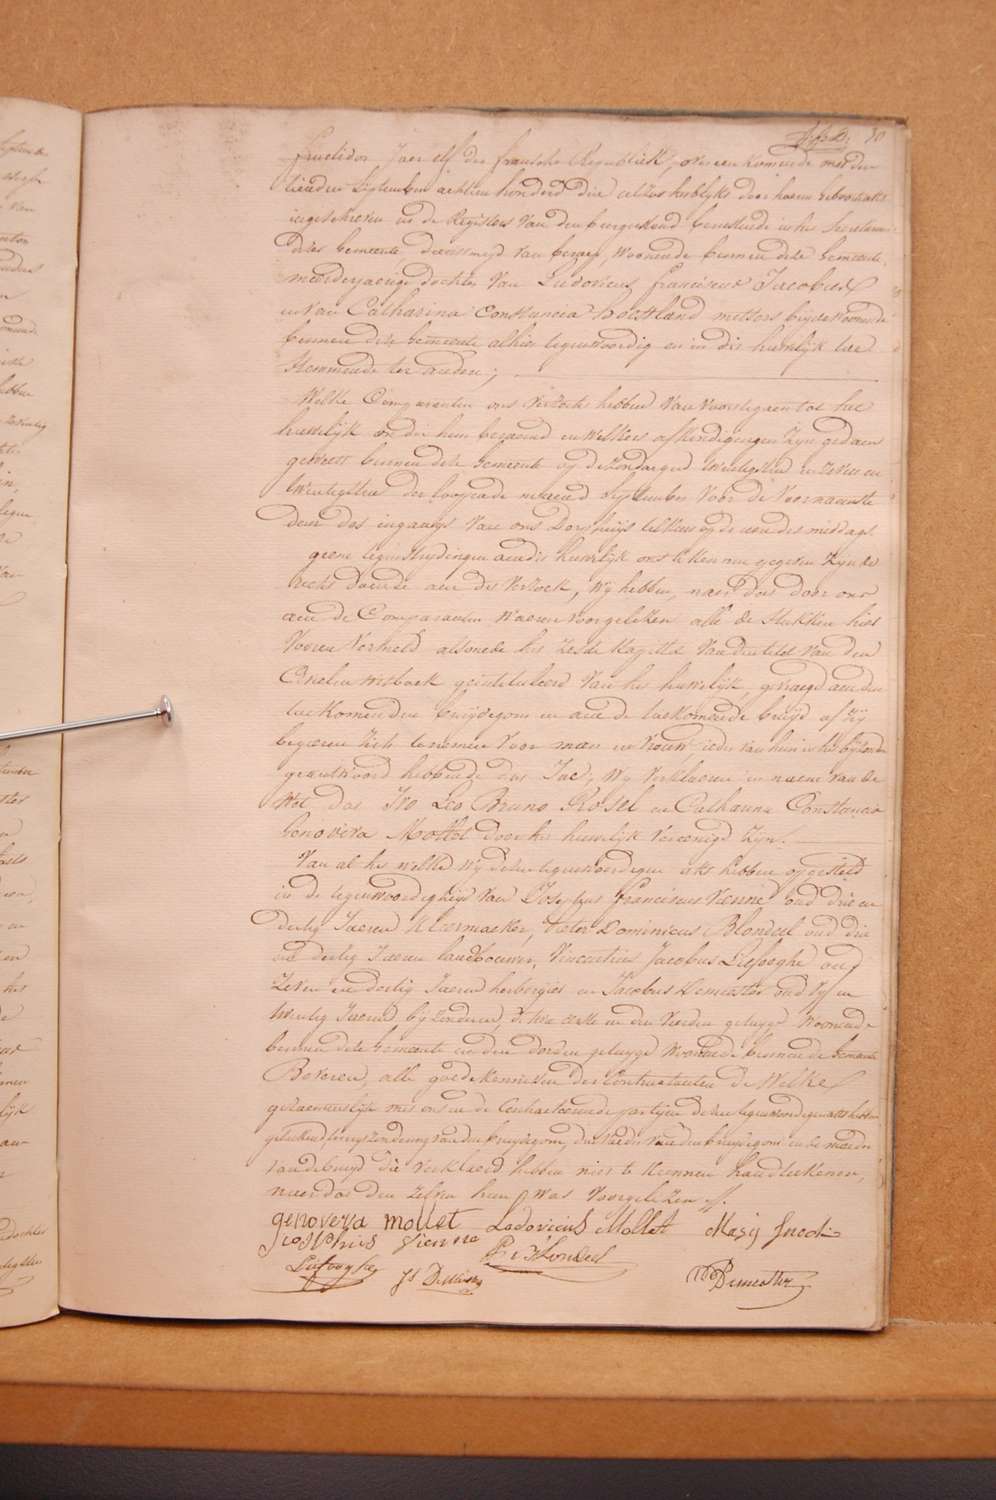 50
fructidor Jaer elf der fransche Republiek, overeen komende met den
tienden September achtien honderd drie
ingeschreven in de Registers van den burgerstand berustende in het Secretariaet
dezer Gemeente dienstmeyd van beroep, woonende binnen deze Gemeente,
meerderjaerige dochter van Ludovicus franciscus Jacobus
en van Catharina Constancia beyde woonende
binnen deze Gemeente alhier tegenwoordig en in dit huwelijk toe
stemmende ter andere;
Welke Comparanten ons verzocht hebben van voortegaen tot het
huwelijk en die hem beraemd en welkers afkondigingen zyn gedaen
geweest binnen deze Gemeente op de zondaegen twintigsten en zeven en
twintigsten der loopende maend September voor de voornaemste
deur des ingangs van ons Dorphuijs telkens op de uer des middags.
geene tegenstrydingen aen dit huwelijk ons te kennen gegeven zynde
recht doende aen dit verzoek, Wy hebben, naer dat door ons
aen de Comparanten waeren voorgelezen alle de stukken hier
vooren vermeld alsmede het zesde kapittel van den titel van den
Civielen wetboek geintituleerd van het huwelijk, gevraegd aen den
toekomenden bruijdegom en aen de toekomende bruijd of zij
begeeren zich te nemen voor man en vrouw ieder van hun in het byzonder
geantwoord hebbende dat Jae, Wy verklaeren in naem van de
Wet, dat Ivo Leo Bruno Rosel en Catharina Constancia
Genoveva Mollet door het huwelijk vereenigd zyn.
Van al het welke wij dezen tegenwoordigen akt hebben opgesteld
in de tegenwoordigheyd van Josephus franciscus Vienne oud drie en
dertig Jaeren kleermaeker, Pieter Dominicus Blondeel oud drie
en dertig Jaeren landbouwer, Vincentius Jacobus Liefooghe oud
zeven en dertig Jaeren herbergier en Jacobus Demeester oud vyf en
twintig Jaeren byzonderen, de twee eerste en den vierden getuyge woonende
binnen deze Gemeente en den derden getuyge woonende binnen de Gemeente
Beveren, alle goede kennissen der Contractanten De Welke
gezaementlijk met ons en de Contracteerende partijen dezen tegenwoordigen akt hebben
geteekend uijtzondering van den bruijdegom, den vader van den bruijdegom en de moeder
van de bruyd die verklaerd hebben niet te kunnen handteekenen,
naer dat den zelven hun was voorgelezen.
genoveva mollet Lodovicus Mollet
Josephus Vienne P. D. Blondeel
Liefooghe Js Demeester Demeester